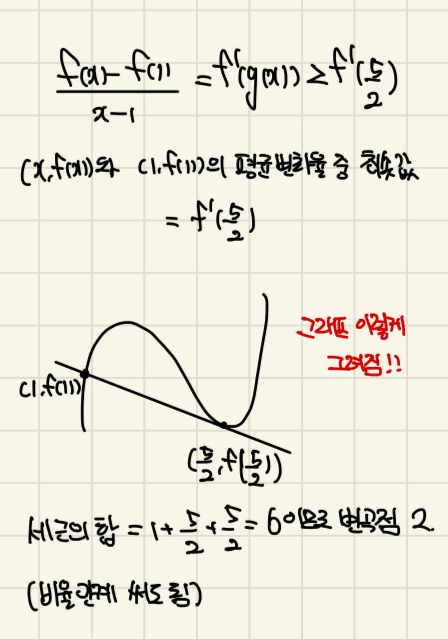 f(x)-f(1) / x-1 = f'(g(x)) ≥ f'(5/2)
(x,f(x))와 (1,f(1))의 평균변화율 중 최솟값
= f'(5/2)
그래프 이렇게
그려짐!!
(1,f(1))
(5/2, f(5/2))
세근의 합 = 1+5/2+5/2 = 6이므로 변곡점 2.
(비율관계 써도 됨)